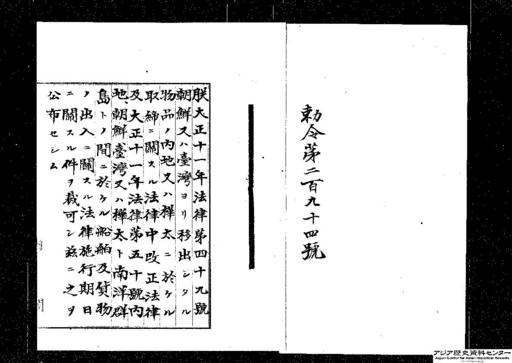 勅令第二百九十四號
朕大正十一年法律第四十九號
朝鮮又ハ臺灣ヨリ移出シタル
物品ノ内地又ハ樺太ニ於ケル
取締ニ關スル法律中改正法律
及大正十一年法律第五十號内
地、朝鮮、臺灣又ハ樺太ト南洋群
島トノ間ニ於ケル船舶及貨物
ノ出入ニ關スル法律施行期日
ニ關スル件ヲ裁可シ茲ニ之ヲ
公布セシム
アジア歴史資料センター
Japan Center for Asian Historical Records